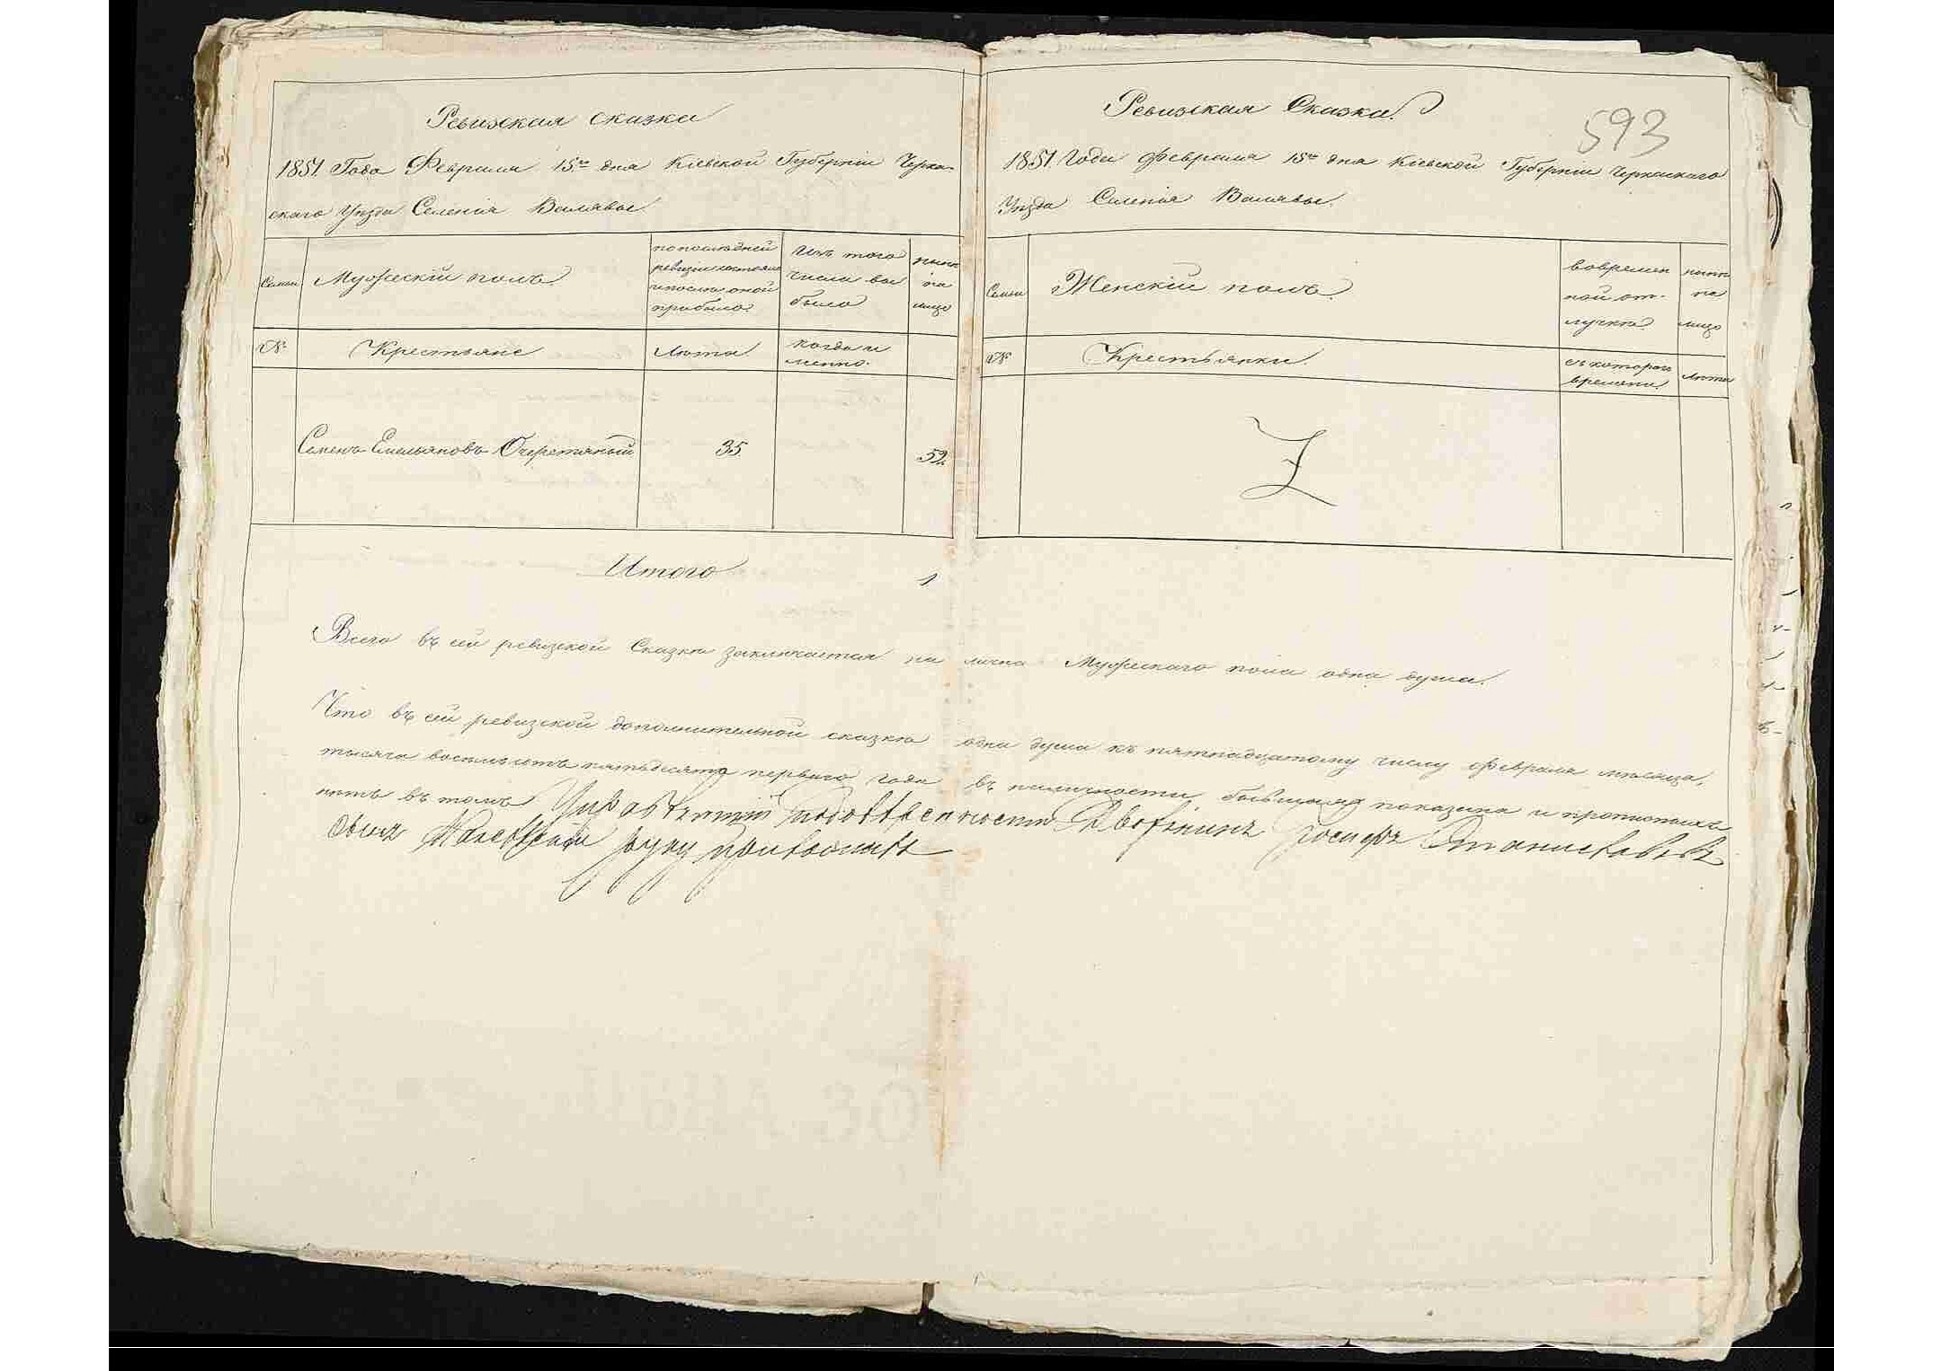 Ревизская сказка
1851 Года Февраля 15го дня Кіевской Губерніи Черка-
скаго Уѣзда Селенія Валявы
Семьи
Мужескій полъ
по последней
ревизіи состояло
и после оной
прибыло
Изъ того
числа вы
было
ныне
на
лицо
№
Крестьяне
Лета
когда и
менно.
Семенъ Емельяновъ Очеретяный
35
52
Итого 1
593
Ревизская Сказка
1851 Года февраля 15го дня Кіевской Губерніи Черкаскаго
Уѣзда Селенія Валявы.
Семьи
Женскій полъ
вовремен
ной от-
лучке
ныне
на
лицо
№
Крестьянки
съ котораго
времени
лета
Всего въ сей ревизской Сказке заключается на лицо Мужескаго пола одна душа.
Что въ сей ревизской дополнительной сказке одна душа къ пятнадцатому числу февраля месяца,
тысяча восемьсотъ пятьдесятъ перваго года въ наличности бывшая показана и прописныхъ
нетъ въ томъ Управляющій Дворянинъ Іосифъ Станиславовъ
сынъ руку приложилъ